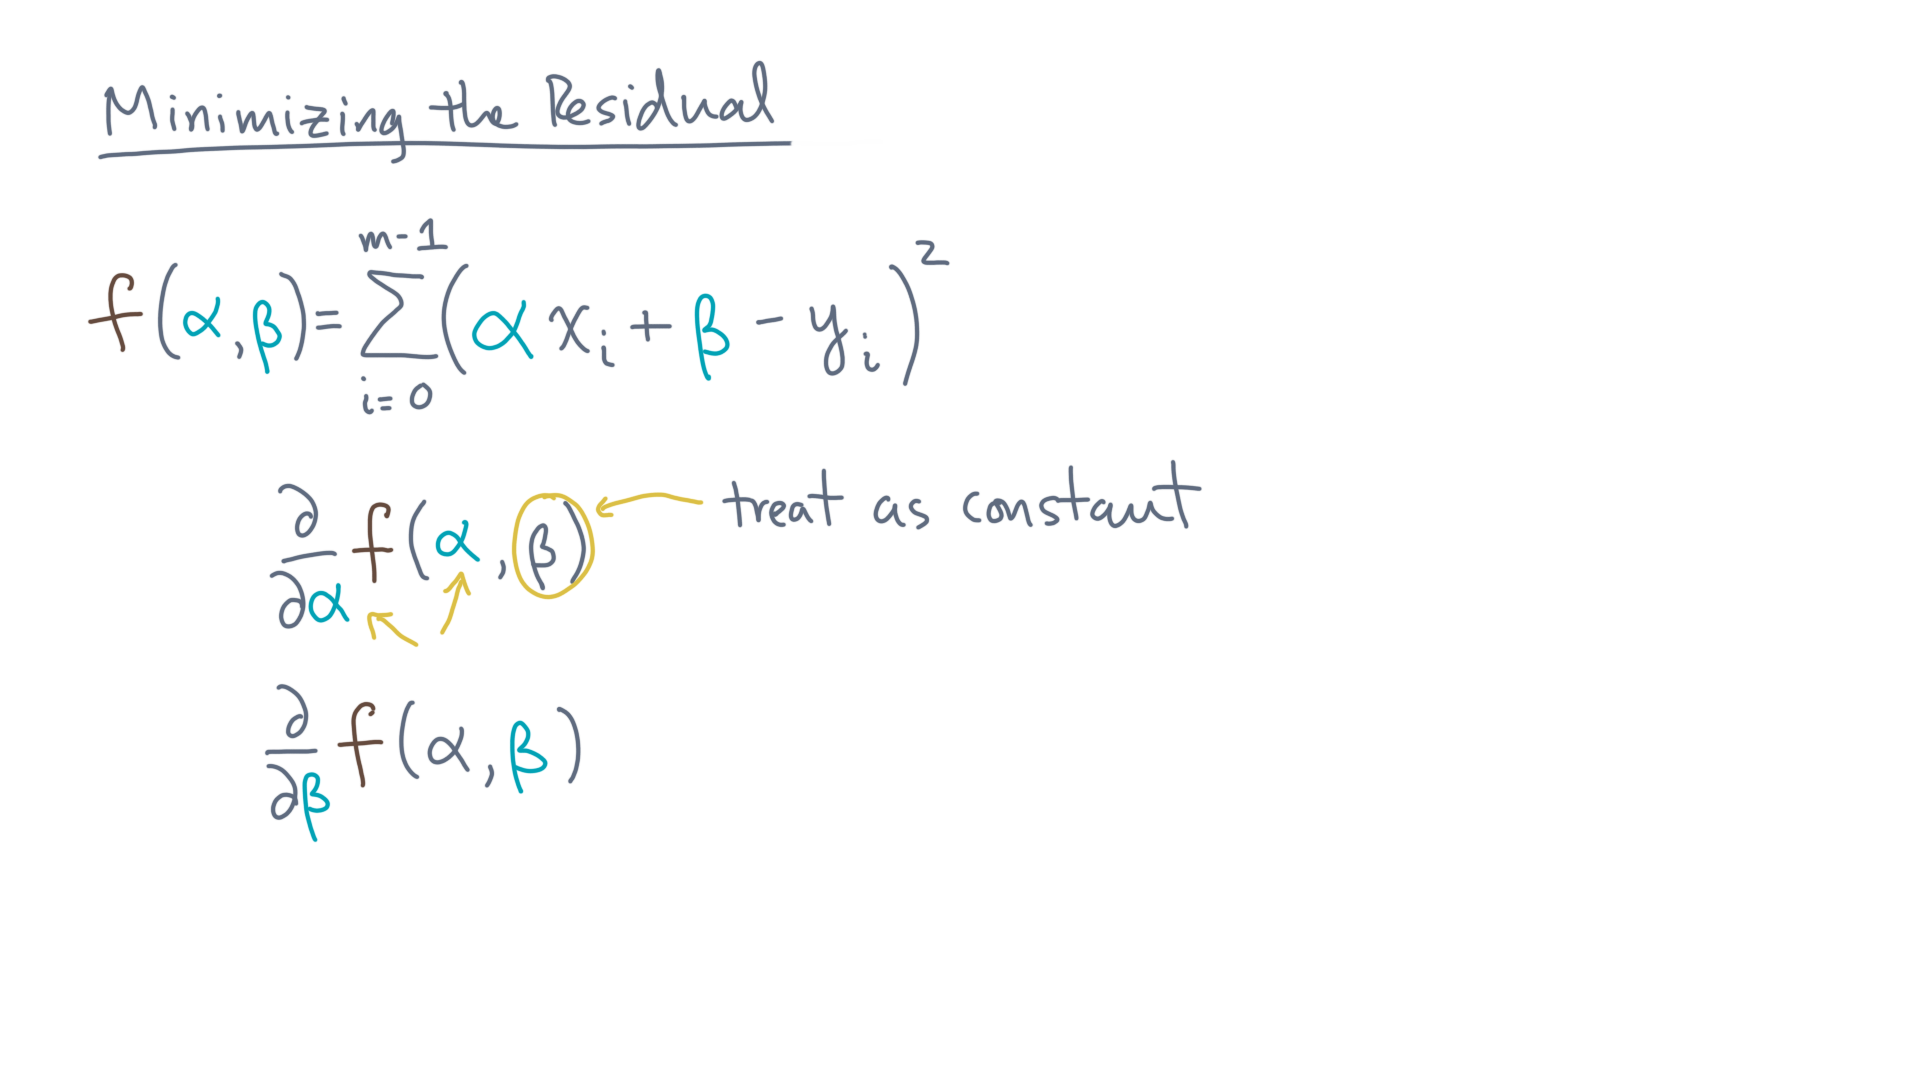 Minimizing the Residual
f(α,β) = ∑_{i=0}^{m-1} (α x_i + β - y_i)^2
∂/∂α f(α,β) treat as constant
∂/∂β f(α,β)